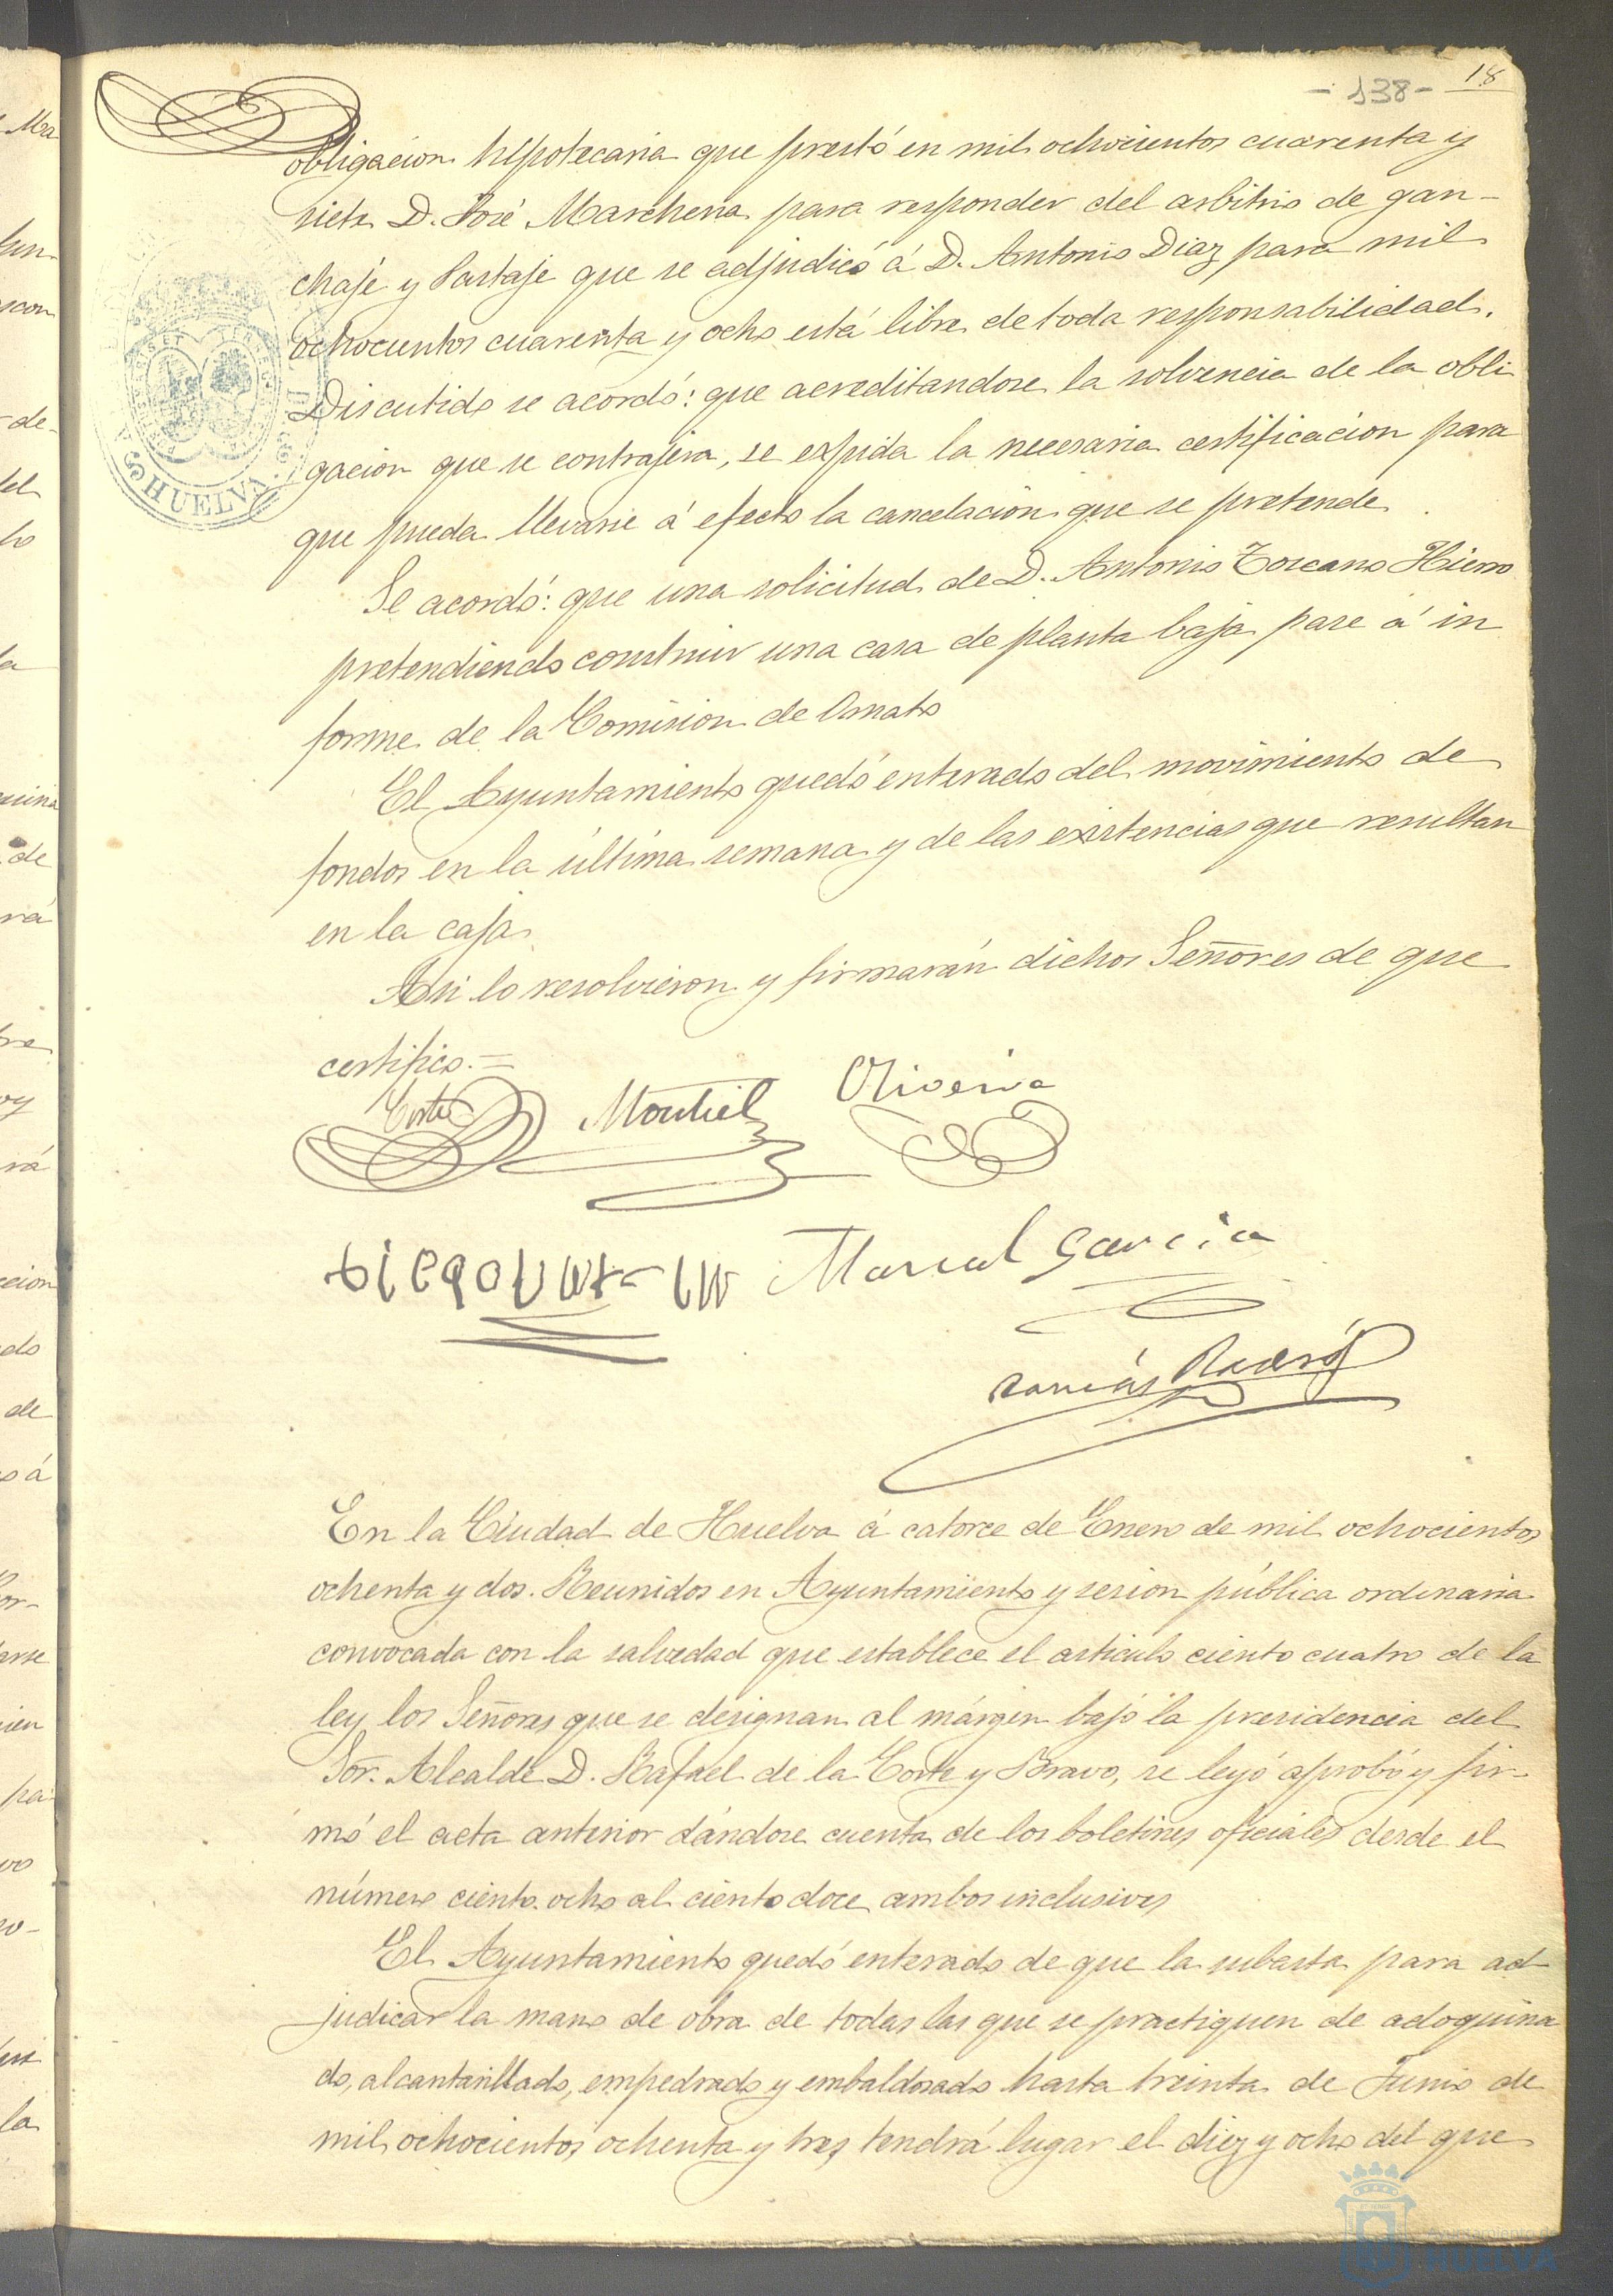 -138- 18
obligacion hipotecaria que prestó en mil ochocientos cuarenta y
siete D. José Marchena para responder del arbitrio de gan-
chaje y Partaje que se adjudicó á D. Antonio Diaz para mil
ochocientos cuarenta y ocho está libre de toda responsabilidad.
Discutido se acordó: que acreditandose la solvencia de la obli
gacion que se contrajera, se expida la necesaria certificacion para
que pueda llevarse á efecto la cancelacion que se pretende
Se acordó: que una solicitud de D. Antonio Toscano Hierro
pretendiendo construir una casa de planta baja pase á in
forme de la Comision de Ornato
El Ayuntamiento quedó enterado del movimiento de
fondos en la última semana y de las existencias que resultan
en la caja
Asi lo resolvieron y firmarán dichos Señores de que
certifico.=
Corte Montiel Oliveira
Marcial Garcia
En la Ciudad de Huelva á catorce de Enero de mil ochocientos
ochenta y dos. Reunidos en Ayuntamiento y sesion pública ordinaria
convocada con la salvedad que establece el articulo ciento cuatro de la
ley los Señores que se designan al márgen bajo la presidencia del
Sor. Alcalde D. Rafael de la Corte y Bravo, se leyó aprobó y fir-
mó el acta anterior dándose cuenta de los boletines oficiales desde el
número ciento ocho al ciento doce ambos inclusives
El Ayuntamiento quedó enterado de que la subasta para ad-
judicar la mano de obra de todas las que se practiquen de adoquina
do, alcantarillado, empedrado y embaldosado hasta treinta de Junio de
mil ochocientos ochenta y tres tendrá lugar el diez y ocho del que
HUELVA
Ayuntamiento de
HUELVA